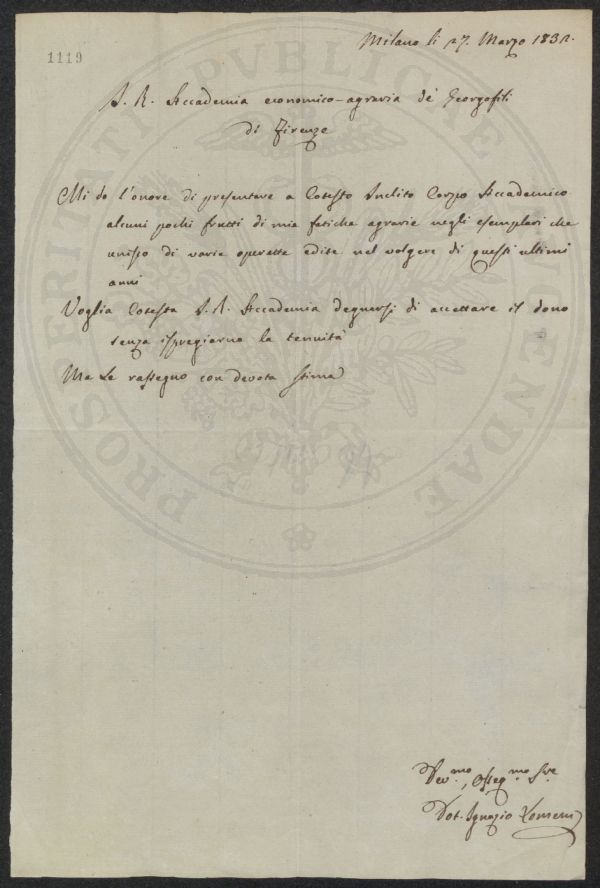 1119
Milano li 27. Marzo 1832.
I. R. Accademia economico-agraria de' Georgofili
di Firenze
Mi do l'onore di presentare a Cotesto Inclito Corpo Accademico
alcuni pochi frutti di mie fatiche agrarie negli esemplari che
unisco di varie operette edite nel volgere di questi ultimi
anni
Voglia Cotesta I. R. Accademia degnarsi di accettare il dono
senza ispregiarne la tenuità
Me Le rassegno con devota stima
Dev.mo, Osseq.mo S.re
Dot. Ignazio Lomeni
PROSPERITATI PUBLICAE AUGENDAE